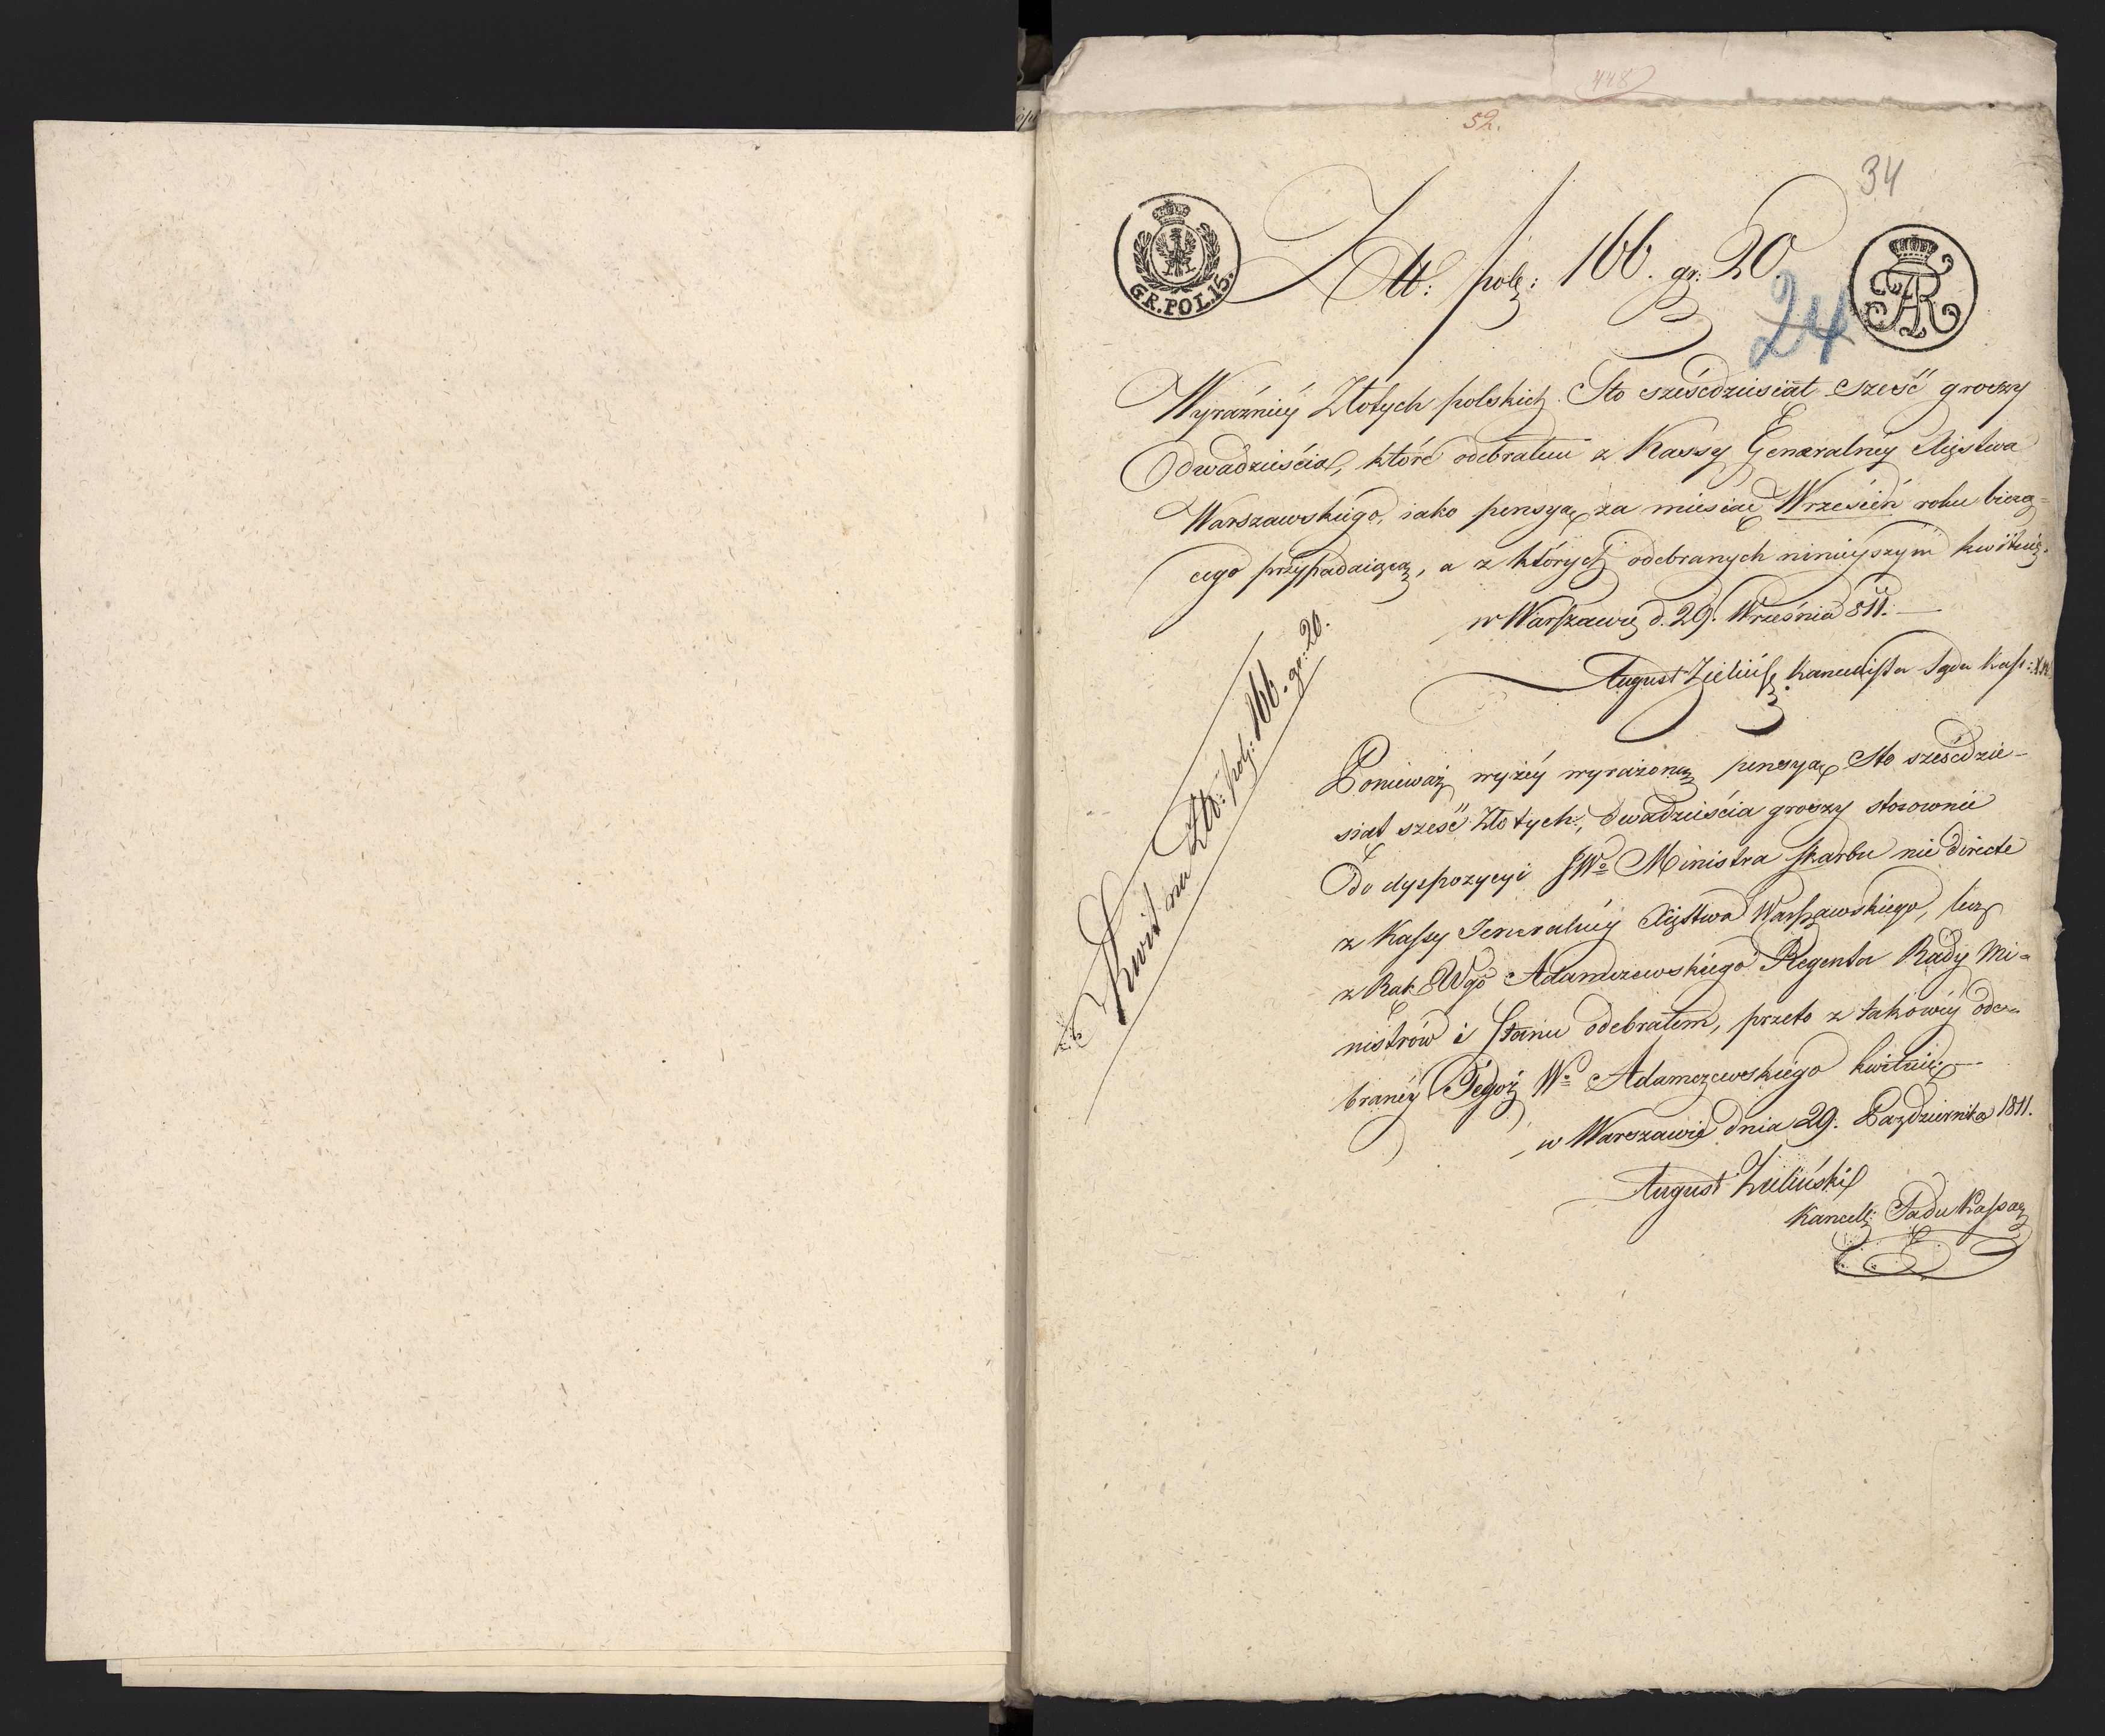 448
52.
34
GR. POL. 15.
Złł: pols: 166. gr: 20.
24
Wyraźniey Złotych polskich Sto sześcdziesiąt sześć groszy
dwadzieścia, które odebrałem z Kassy Generalney Xięstwa
Warszawskiego, iako pensyą za miesiąc Wrzesień roku bieżą=
cego przypadaiącą, a z których odebranych ninieyszym kwituię.
w Warszawie d. 29. Września 811.
August Zieliński Kancellista Sądu Kass:
Kwit na Złb: pols: 166. gr: 20.
Ponieważ wyżey wyrażoną pensyą Sto sześcdzie-
siąt sześć Złotych, dwadzieścia groszy stosownie
do dyspozycyi JWo Ministra Skarbu nie directe
z Kassy Jeneralney Xięstwa Warszawskiego, lecz
z Rąk Wgo Adamczewskiego Regenta Rady Mi=
nistrów i Stanu odebrałem, przeto z takowey ode=
braney Tegoż Wo Adamczewskiego kwituię
w Warszawie dnia 29. Października 1811.
August Zieliński
Kancell: Sądu Kassac